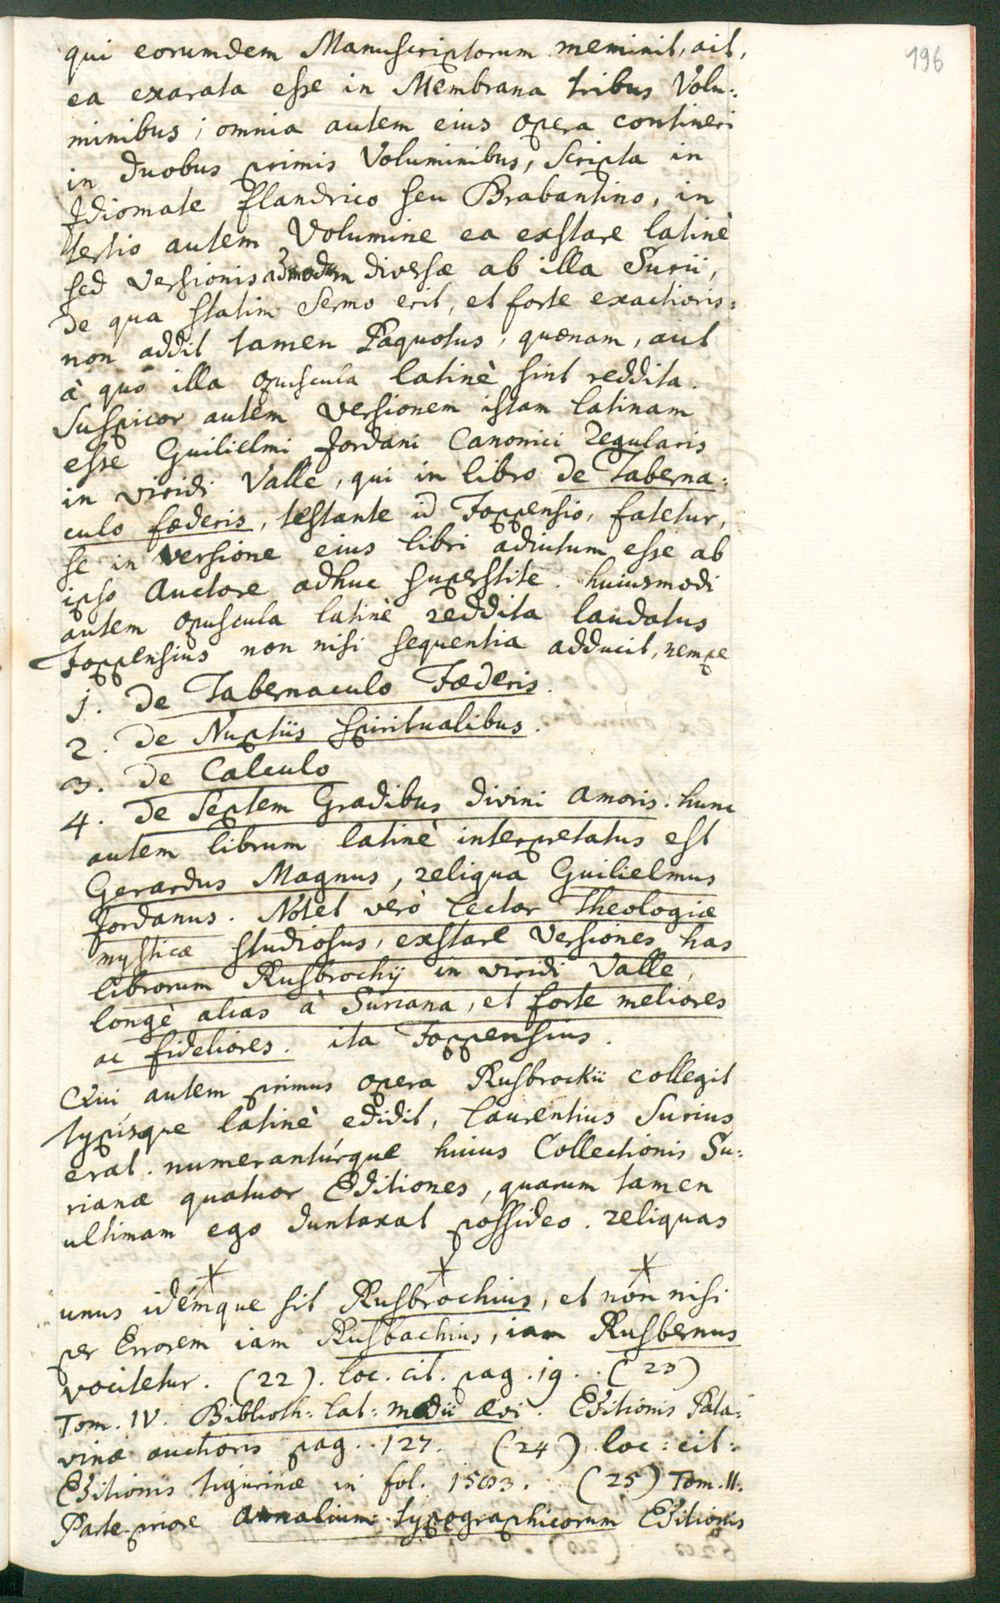 196
qui eorumdem Manuscriptorum meminit, ait,
ea exarata esse in Membrana tribus Volu:
minibus; omnia autem eius opera contineri
in duobus primis Voluminibus, scripta in
Idiomate flandrico seu Brabantino, in
tertio autem Volumine ea exstare latinè
sed versionis admodum diversæ ab illa Surii,
de qua statim sermo erit, et forte exactioris:
non addit tamen Paquotus, quænam, aut
à quô illa opuscula latinè sint reddita.
Suspicor autem versionem istam latinam
esse Guilielmi Jordani Canonici Regularis
in viridi Valle, qui in libro de Taberna:
culo fœderis, testante id Foppensio, fatetur,
se in versione eius libri adiutum esse ab
ipso Auctore adhuc superstite. huiusmodi
autem opuscula latinè reddita laudatus
Foppensius non nisi sequentia adducit, nempe
1. De Tabernaculo Fœderis.
2. De Nuptiis spiritualibus.
3. De Calculo
4. De Septem Gradibus divini amoris. hunc
autem librum latinè interpretatus est
Gerardus Magnus, reliqua Guilielmus
Jordanus. Notet verò lector theologiæ
mysticæ studiosus, exstare Versiones has
librorum Rusbrochij in viridi Valle,
longè alias à Suriana, et forte meliores
ac fideliores. ita Foppensius.
Qui autem primus opera Rusbrockii collegit
typisque latinè edidit, Laurentius Surius
erat. numeranturque huius Collectionis Su:
rianæ quatuor Editiones, quarum tamen
ultimam ego duntaxat possideo. reliquas
unus idémque sit Rusbrochius, et non nisi
per Errorem iam Rusbachius, iam Rusbernus
vocitetur. (22). loc. cit. pag. 19. (23)
Tom. IV. Biblioth: lat: medii ævi. Editionis Pata:
vinæ auctioris pag. 127. (24) loc: cit:
Editionis tigurinæ in fol. 1583. (25) Tom. II.
Parte priore Annalium typographicorum Editionis